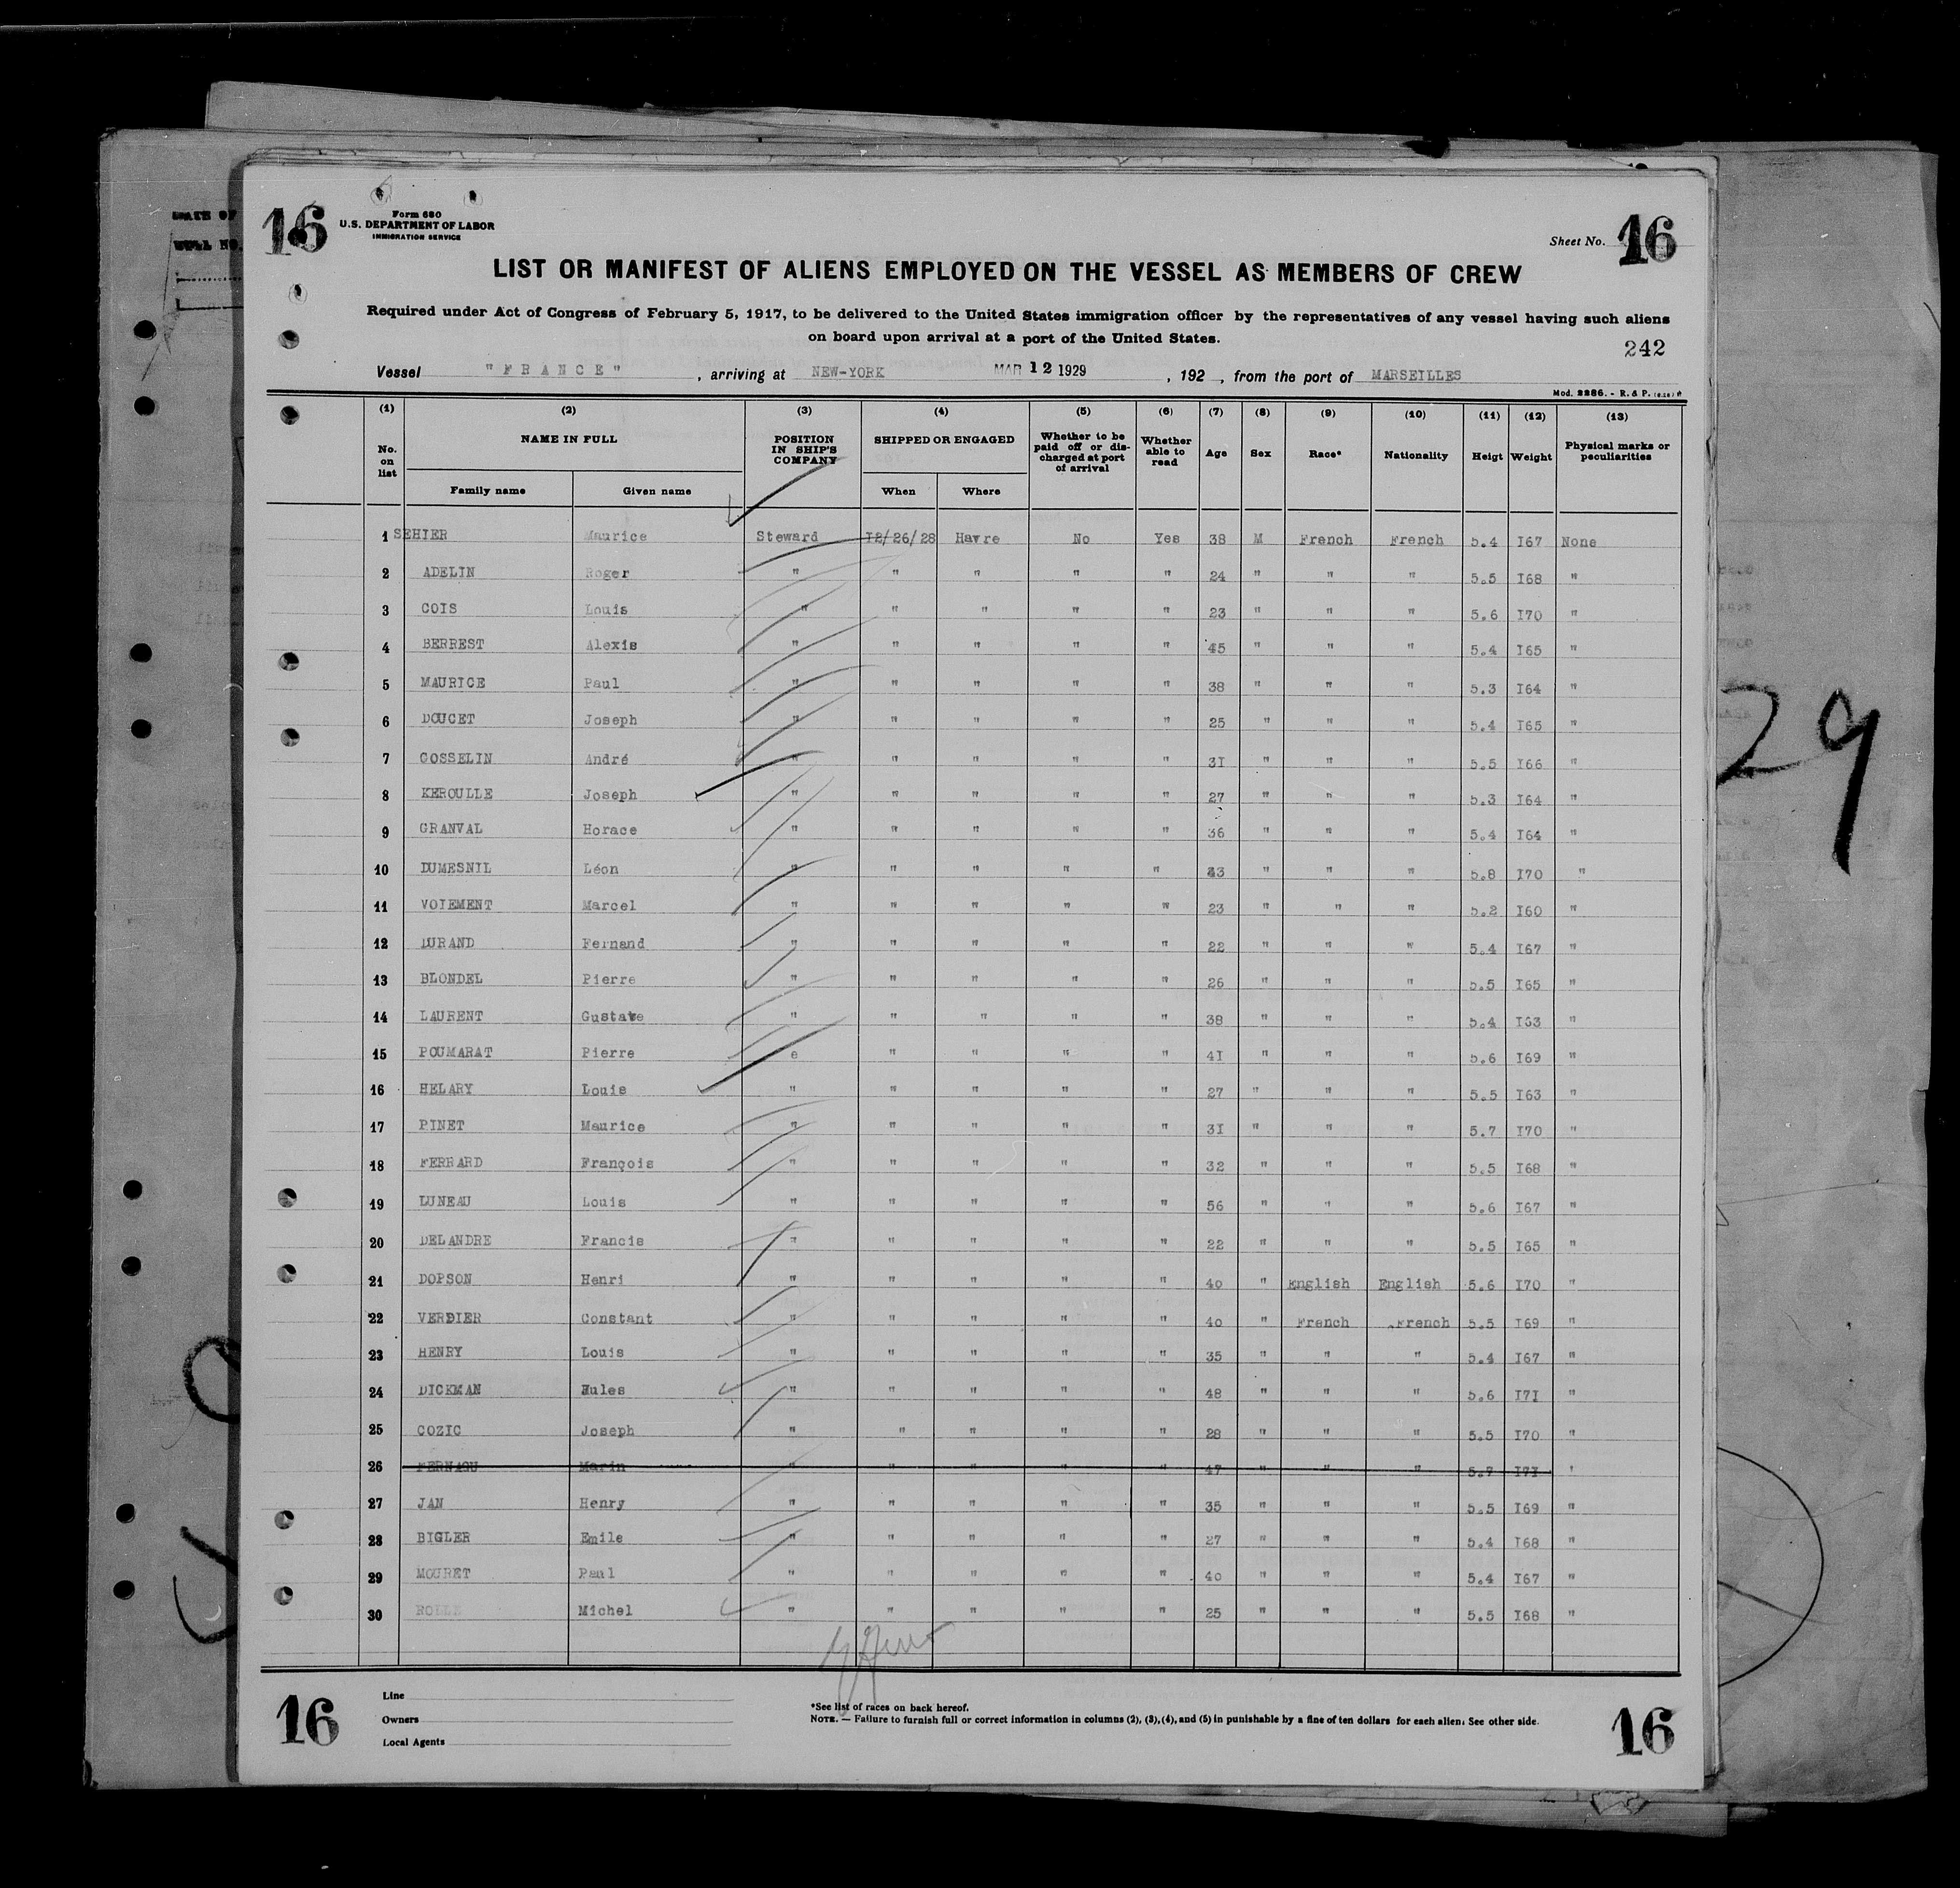 16
Form 680
U.S. DEPARTMENT OF LABOR
IMMIGRATION SERVICE
Sheet No. 16
LIST OR MANIFEST OF ALIENS EMPLOYED ON THE VESSEL AS MEMBERS OF CREW
Required under Act of Congress of February 5, 1917, to be delivered to the United States immigration officer by the representatives of any vessel having such aliens
on board upon arrival at a port of the United States.
242
Vessel "FRANCE" , arriving at NEW-YORK MAR 12 1929 , 192 , from the port of MARSEILLES
Mod. 2286. - R. & P.
(1) (2) (3) (4) (5) (6) (7) (8) (9) (10) (11) (12) (13)
No. on list NAME IN FULL POSITION IN SHIP'S COMPANY SHIPPED OR ENGAGED Whether to be paid off or discharged at port of arrival Whether able to read Age Sex Race* Nationality Heigt Weight Physical marks or peculiarities
Family name Given name When Where
1 SEHIER Maurice Steward I2/26/28 Havre No Yes 38 M French French 5.4 I67 None
2 ADELIN Roger " " " " " 24 " " " 5.5 I68 "
3 COIS Louis " " " " " 23 " " " 5.6 I70 "
4 BERREST Alexis " " " " " 45 " " " 5.4 I65 "
5 MAURICE Paul " " " " " 38 " " " 5.3 I64 "
6 DOUCET Joseph " " " " " 25 " " " 5.4 I65 "
7 GOSSELIN André " " " " " 3I " " " 5.5 I66 "
8 KEROULLE Joseph " " " " " 27 " " " 5.3 I64 "
9 GRANVAL Horace " " " " " 36 " " " 5.4 I64 "
10 DUMESNIL Léon " " " " " 43 " " " 5.8 I70 "
11 VOIEMENT Marcel " " " " " 23 " " " 5.2 I60 "
12 DURAND Fernand " " " " " 22 " " " 5.4 I67 "
13 BLONDEL Pierre " " " " " 26 " " " 5.5 I65 "
14 LAURENT Gustave " " " " " 38 " " " 5.4 I63 "
15 POUMARAT Pierre e " " " " 4I " " " 5.6 I69 "
16 HELARY Louis " " " " " 27 " " " 5.5 I63 "
17 PINET Maurice " " " " " 3I " " " 5.7 I70 "
18 FERRARD François " " " " " 32 " " " 5.5 I68 "
19 LUNEAU Louis " " " " " 56 " " " 5.6 I67 "
20 DELANDRE Francis " " " " " 22 " " " 5.5 I65 "
21 DOPSON Henri " " " " " 40 " English English 5.6 I70 "
22 VERDIER Constant " " " " " 40 " French French 5.5 I69 "
23 HENRY Louis " " " " " 35 " " " 5.4 I67 "
24 DICKMAN Jules " " " " " 48 " " " 5.6 I7I "
25 COZIC Joseph " " " " " 28 " " " 5.5 I70 "
26 FERNAGU Marin " " " " " 47 " " " 5.7 I7I "
27 JAN Henry " " " " " 35 " " " 5.5 I69 "
28 BIGLER Emile " " " " " 27 " " " 5.4 I68 "
29 MOURET Paul " " " " " 40 " " " 5.4 I67 "
30 ROLLE Michel " " " " " 25 " " " 5.5 I68 "
16
Line
Owners
Local Agents
*See list of races on back hereof.
NOTE. — Failure to furnish full or correct information in columns (2), (3), (4), and (5) in punishable by a fine of ten dollars for each alien. See other side.
16
29